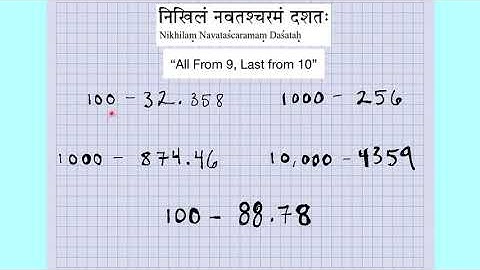 निखिलं नवतश्चरमं दशतः
Nikhilaṃ Navataścaramaṃ Daśataḥ
“All From 9, Last from 10”
100 - 32.358 1000 - 256
1000 - 874.46 10,000 - 4359
100 - 88.78